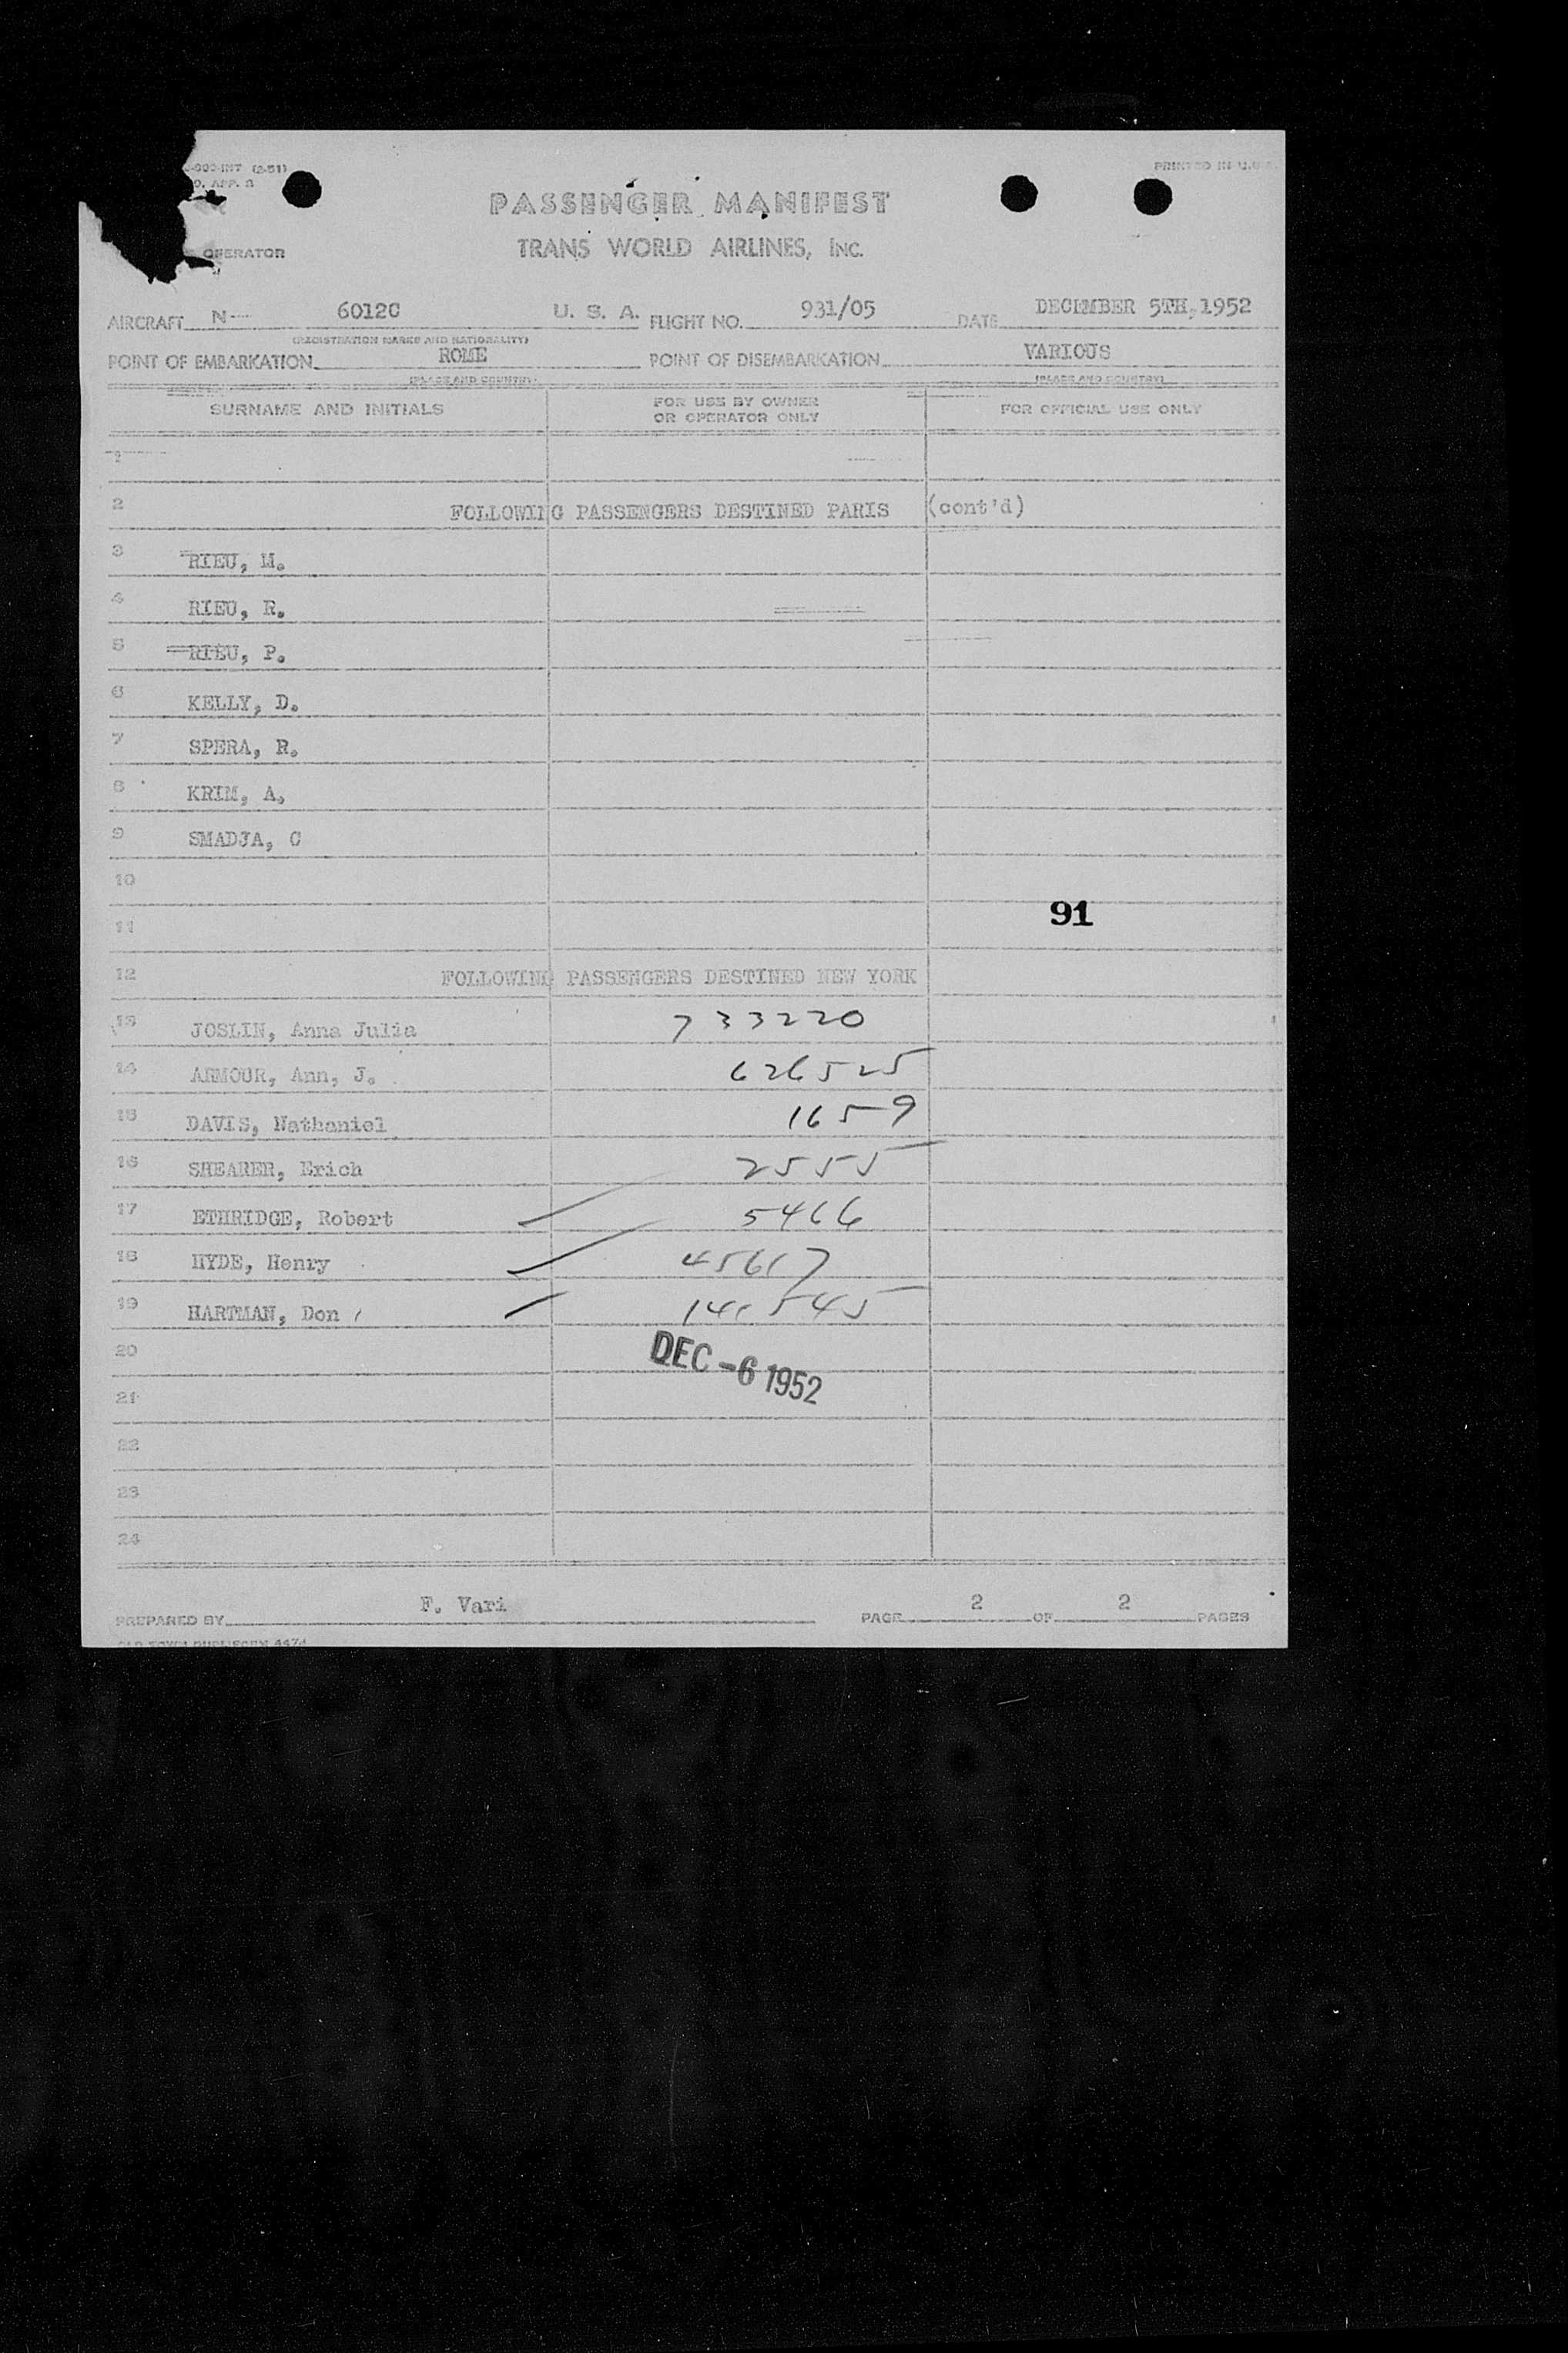 PRINTED IN U.S.A.
PASSENGER MANIFEST
OPERATOR
TRANS WORLD AIRLINES, INC.
AIRCRAFT N- 6012C U. S. A. FLIGHT NO. 931/05 DATE DECEMBER 5TH, 1952
(REGISTRATION MARKS AND NATIONALITY)
POINT OF EMBARKATION ROME POINT OF DISEMBARKATION VARIOUS
(PLACE AND COUNTRY) (PLACE AND COUNTRY)
SURNAME AND INITIALS FOR USE BY OWNER OR OPERATOR ONLY FOR OFFICIAL USE ONLY
1
2 FOLLOWING PASSENGERS DESTINED PARIS (cont'd)
3 RIEU, M.
4 RIEU, R.
5 RIEU, P.
6 KELLY, D.
7 SPERA, R.
8 KRIM, A.
9 SMADJA, C
10
91
11
12 FOLLOWING PASSENGERS DESTINED NEW YORK
13 JOSLIN, Anna Julia 733220
14 ARMOUR, Ann, J. 626525
15 DAVIS, Nathaniel 1659
16 SHEARER, Erich 2555
17 ETHRIDGE, Robert 5466
18 HYDE, Henry 45617
19 HARTMAN, Don
20 DEC -6 1952
21
22
23
24
PREPARED BY F. Vari PAGE 2 OF 2 PAGES